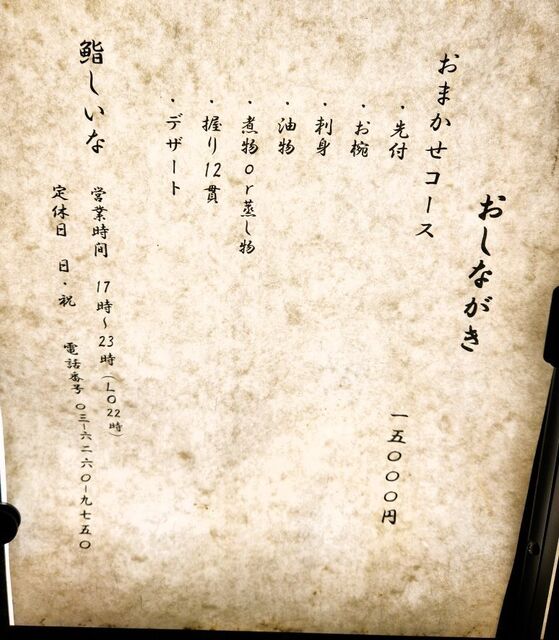 おしながき
おまかせコース
・先付
・お椀
・刺身
・油物
・煮物or蒸し物
・握り12貫
・デザート
一五〇〇〇円
鮨しいな
営業時間 17時〜23時(LO22時)
定休日 日・祝
電話番号 〇三-六二六〇-九七五〇